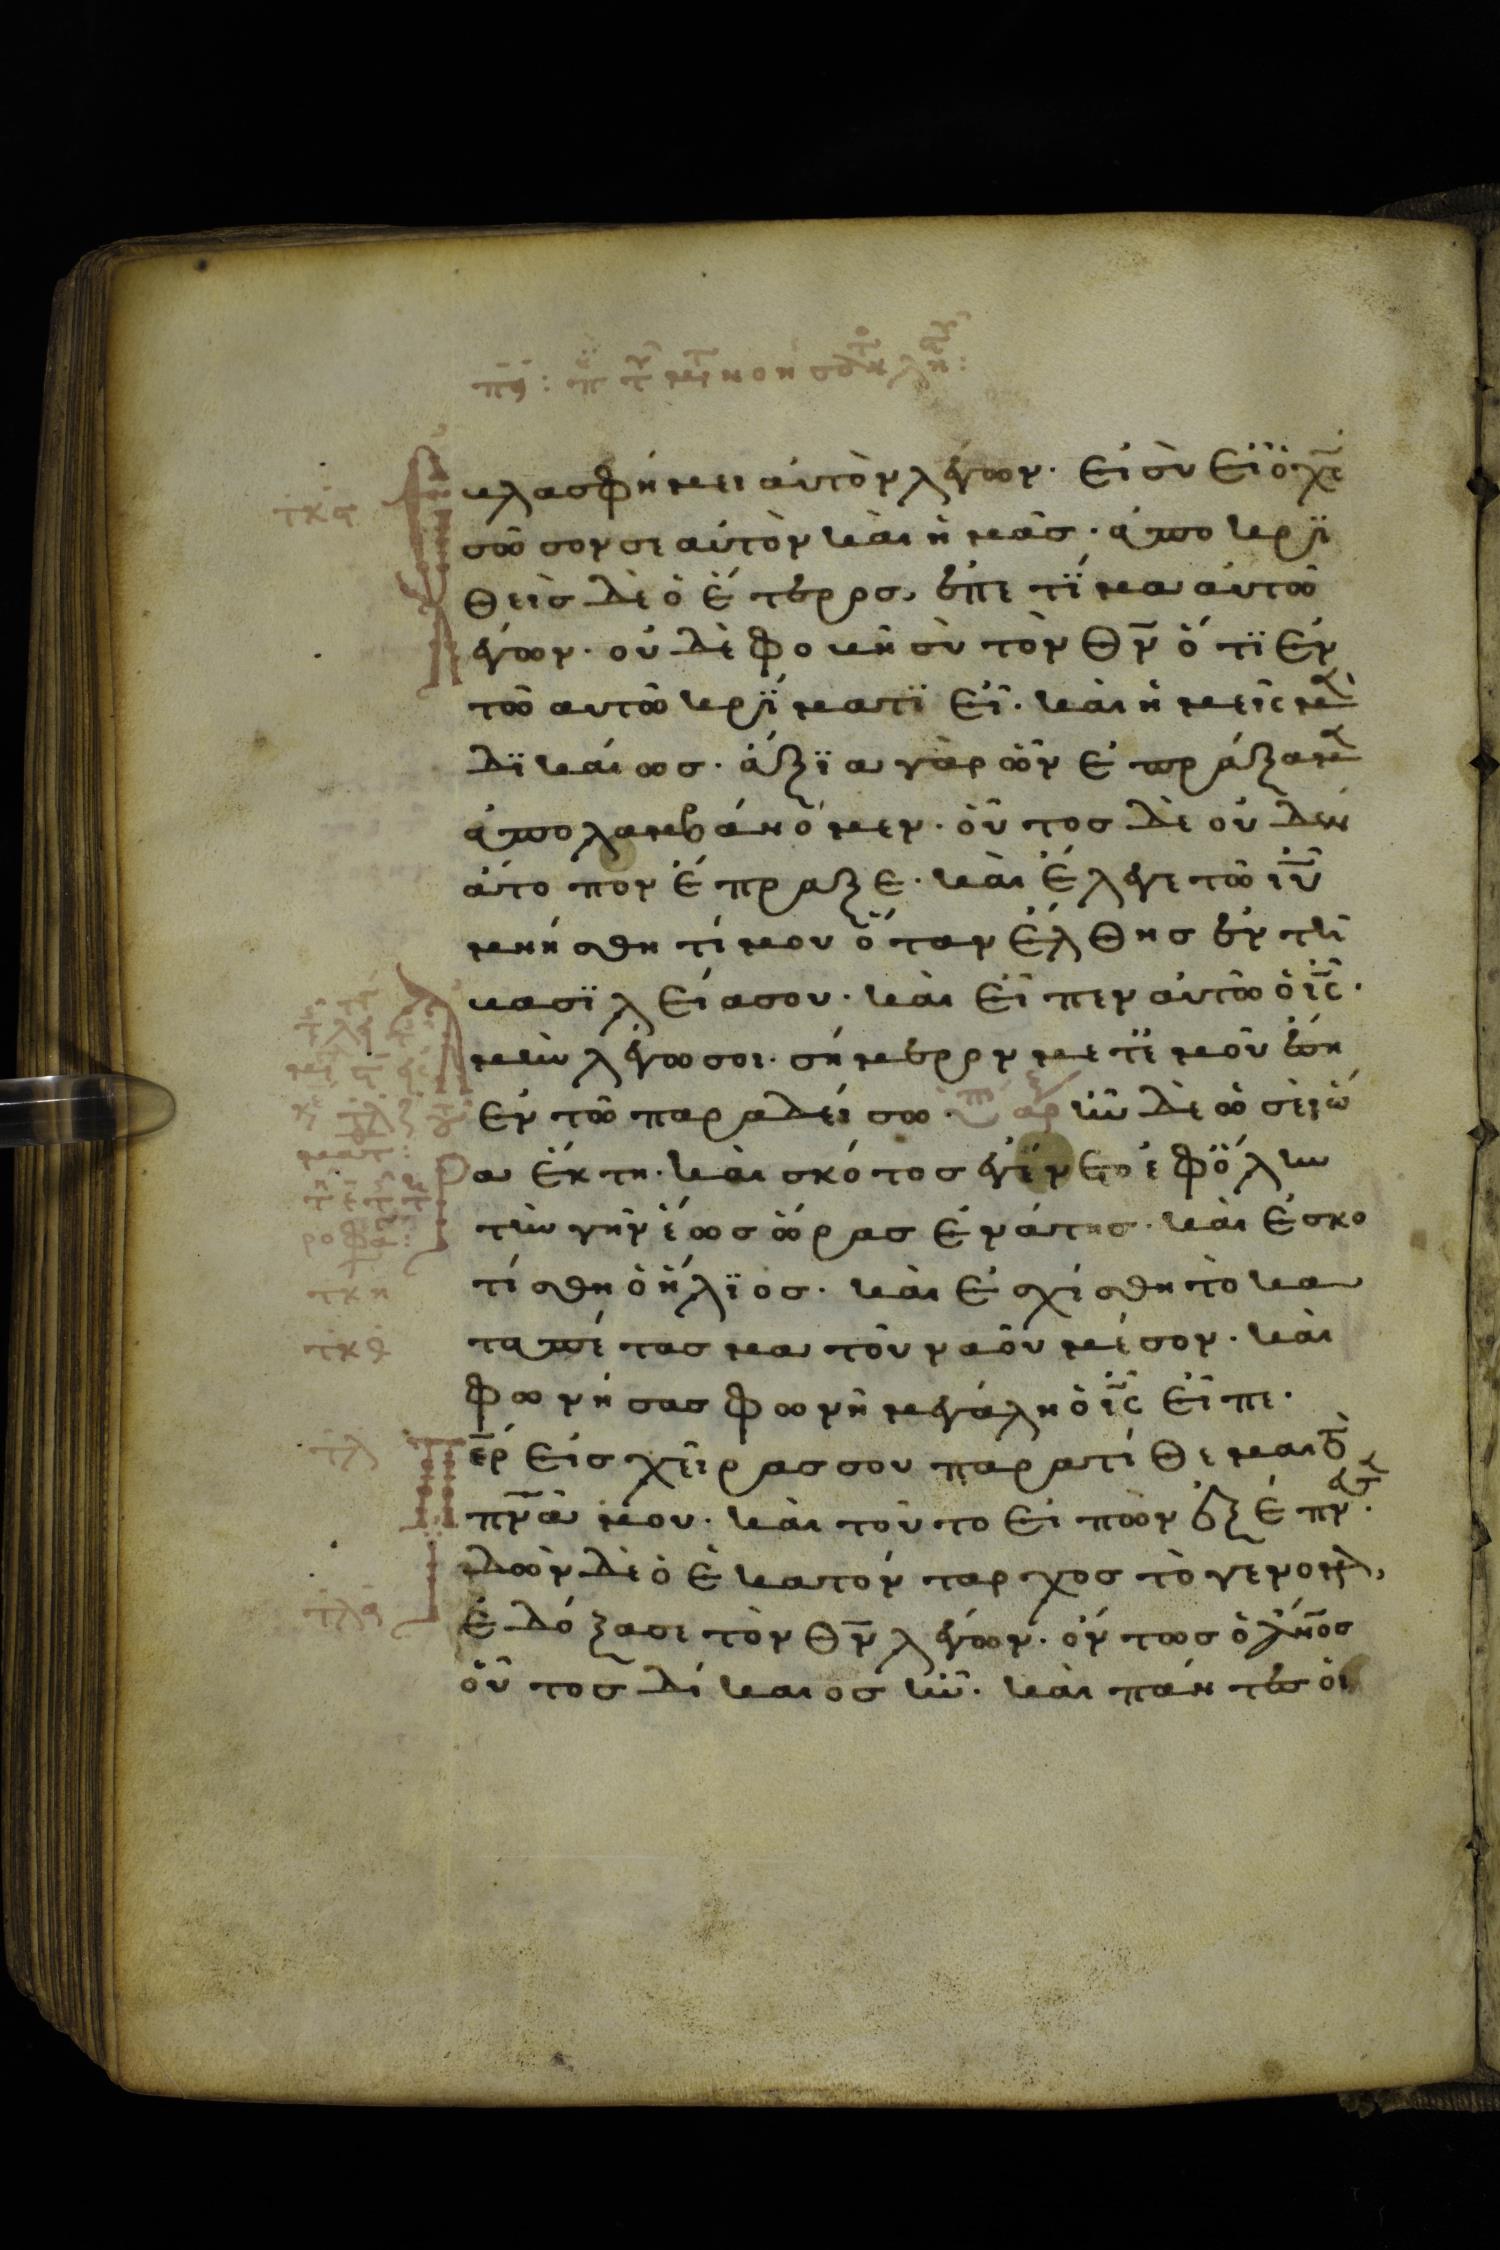 βλασφήμει αὐτὸν λέγων· εἰ σὺ εἶ ὁ χς
σῶσον σεαυτὸν καὶ ἡμᾶς· ἀποκρϊ
θεὶς δὲ ὁ ἕτερος, ἐπετίμα αὐτῶ
λέγων· οὐδὲ φοβῆ σὺ τὸν θν ὅτι ἐν
τῶ αὐτῶ κρίματι εἶ· καὶ ἡμεῖς μὲν
δικαίως· ἄξια γὰρ ὧν ἐπράξαμεν
ἀπολαμβάνομεν· οὗτος δὲ οὐδὲν
ἄτοπον ἔπραξε· καὶ ἔλεγε τῶ ιυ
μνήσθητί μου ὅταν ἔλθης ἐν τῆ
βασιλεία σου· καὶ εἶπεν αὐτῶ ὁ ις·
ἀμὴν λέγω σοι· σήμερον μετ' ἐμοῦ ἔση
ἐν τῶ παραδείσω· ἦν δὲ ὡσεὶ ὥ
ρα ἕκτη· καὶ σκότος ἐγένετο ἐφ' ὅλην
τὴν γῆν ἕως ὥρας ἐνάτης· καὶ ἐσκο
τίσθη ὁ ἥλιος· καὶ ἐσχίσθη τὸ κα
ταπέτασμα τοῦ ναοῦ μέσον· καὶ
φωνήσας φωνῆ μεγάλη ὁ ις εἶπε·
περ εἰς χεῖράς σου παρατίθεμαι τὸ
πνα μου· καὶ τοῦτο εἰπὼν ἐξέπνευσεν·
ἰδὼν δὲ ὁ ἑκατόνταρχος τὸ γενόμενον,
ἐδόξασε τὸν θν λέγων· ὄντως ὁ ανος
οὗτος δίκαιος ἦν· καὶ πάντες οἱ
τκη
τκθ
τλ
τλα